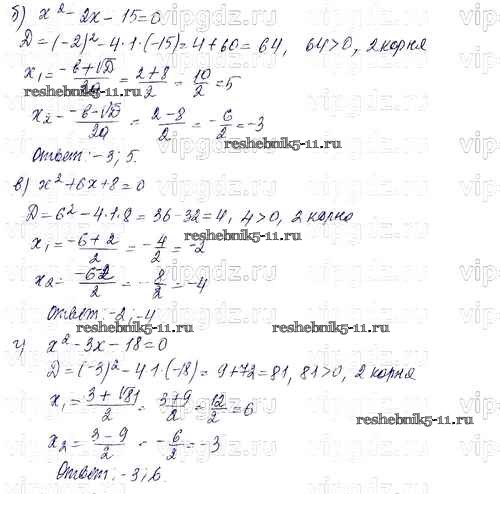 б) x² - 2x - 15 = 0
D = (-2)² - 4·1·(-15) = 4 + 60 = 64, 64 > 0, 2 корня
x₁ = (-b + √D)/2a = (2 + 8)/2 = 10/2 = 5
reshebnik5-11.ru
x₂ = (-b - √D)/2a = (2 - 8)/2 = -6/2 = -3
reshebnik5-11.ru
Ответ: -3; 5.
в) x² + 6x + 8 = 0
D = 6² - 4·1·8 = 36 - 32 = 4, 4 > 0, 2 корня
reshebnik5-11.ru
x₁ = (-6 + 2)/2 = -4/2 = -2
x₂ = (-6 - 2)/2 = -8/2 = -4
Ответ: -2; -4
reshebnik5-11.ru reshebnik5-11.ru
г) x² - 3x - 18 = 0
D = (-3)² - 4·1·(-18) = 9 + 72 = 81, 81 > 0, 2 корня
x₁ = (3 + √81)/2 = (3 + 9)/2 = 12/2 = 6
reshebnik5-11.ru
x₂ = (3 - 9)/2 = -6/2 = -3
Ответ: -3; 6.
vipgdz.ru